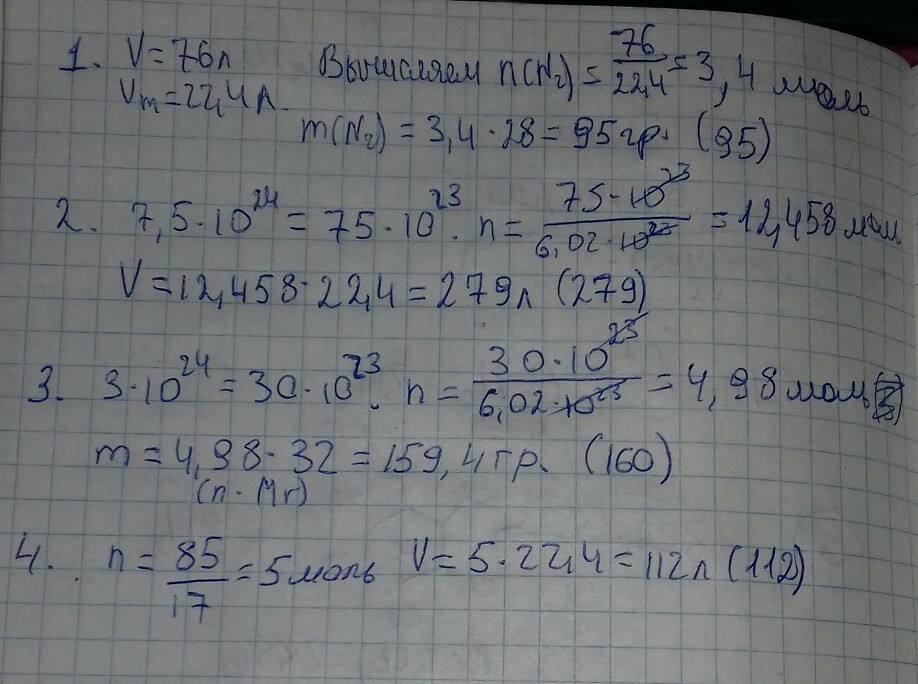 1. V=76л Вычисляем n(N₂) = 76/22,4 = 3,4 моль
Vm=22,4л.
m(N₂) = 3,4·28 = 95гр. (95)
2. 7,5·10²⁴ = 75·10²³. n = 75·10²³/6,02·10²³ = 12,458 моль
V=12,458·22,4=279л (279)
3. 3·10²⁴ = 30·10²³. n = 30·10²³/6,02·10²³ = 4,98 моль
m = 4,98·32 = 159,4гр. (160)
(n·Mr)
4. n = 85/17 = 5 моль V=5·22,4=112л (112)